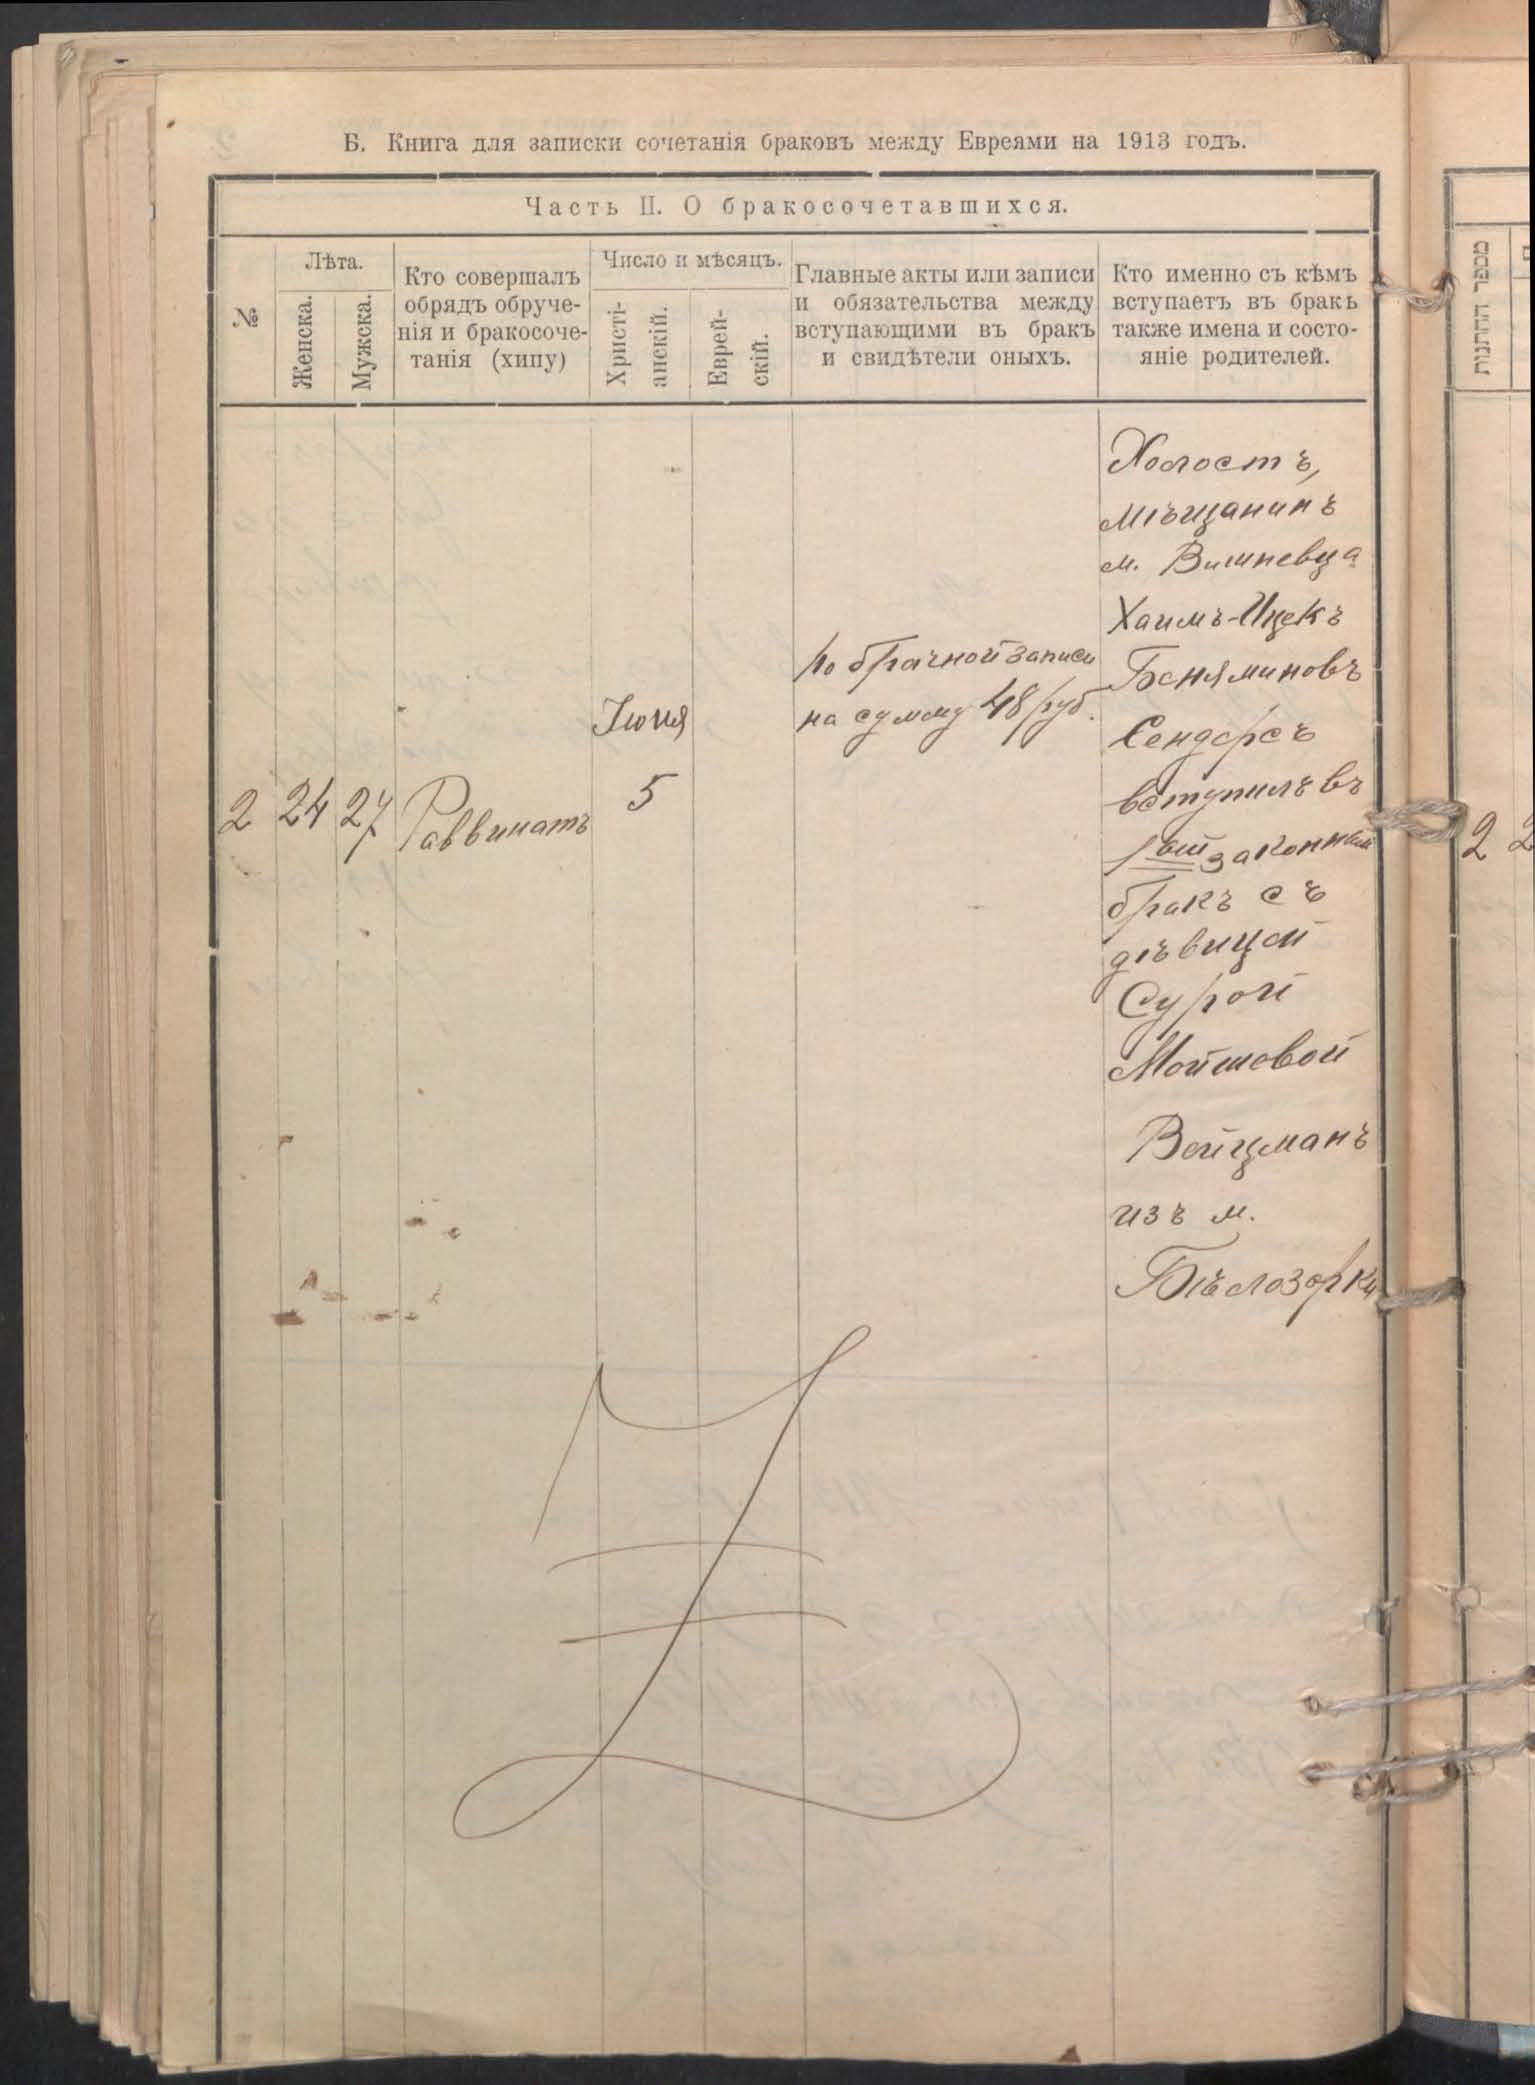 Б. Книга для записки сочетанія браковъ между Евреями на 1913 годъ.
Часть II. О бракосочетавшихся.
№
Лѣта.
Женска.
Мужска.
Кто совершалъ
обрядъ обруче-
нія и бракосоче-
танія (хипу)
Число и мѣсяцъ.
Христі-
анскій.
Еврей-
скій.
Главные акты или записи
и обязательства между
вступающими въ бракъ
и свидѣтели оныхъ.
Кто именно съ кѣмъ
вступаетъ въ бракъ
также имена и состо-
яніе родителей.
2
24
27
Раввинатъ
Іюня
5
по брачной записи
на сумму 48 руб.
Холостъ,
мѣщанинъ
м. Вишневца
Хаимъ-Ицекъ
Беняминовъ
Сендеръ
вступилъ въ
1ый законный
бракъ съ
дѣвицей
Сурой
Мойшовой
Вейцманъ
изъ м.
Бѣлозорки
מספר החתנות
2 2